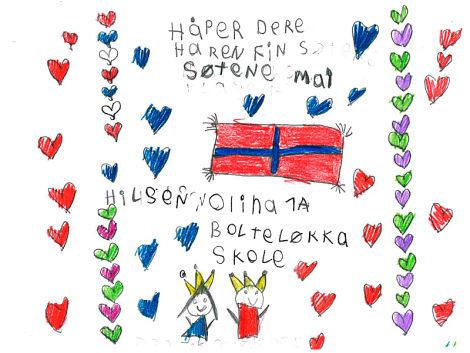 HÅPER DERE
HAR EN FIN SØTE
SØTENE MAI
HILSEN NOLINA 1A
BOLTELØKKA
SKOLE